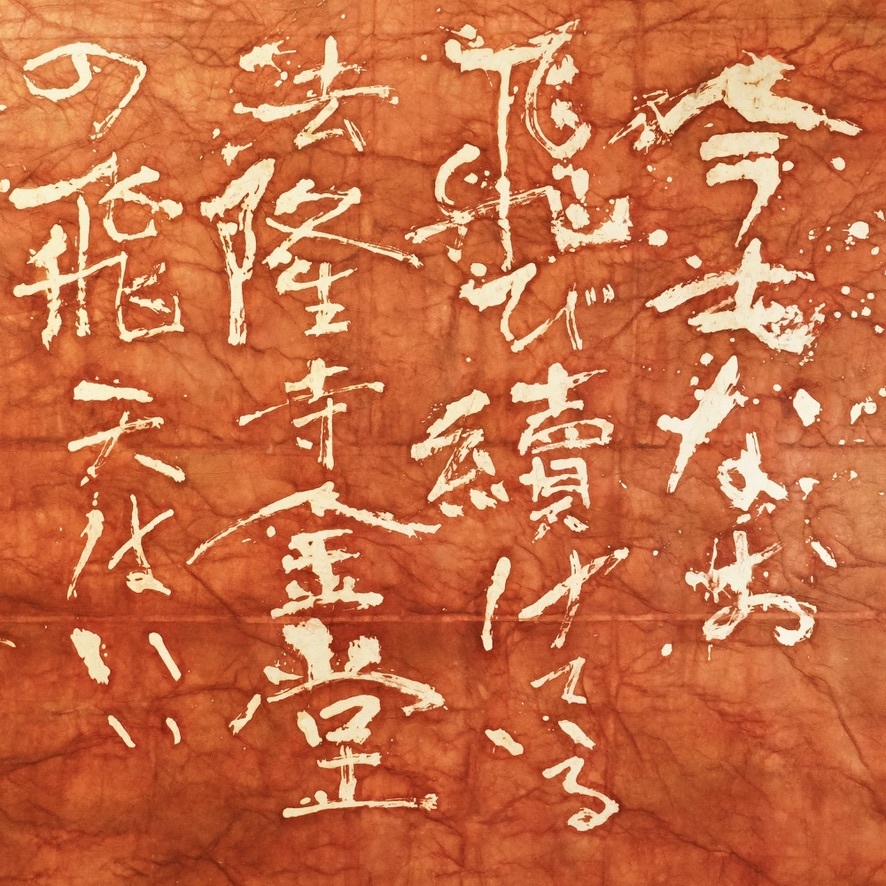 今もなお
飛び續けている
法隆寺金堂
の飛天はいい